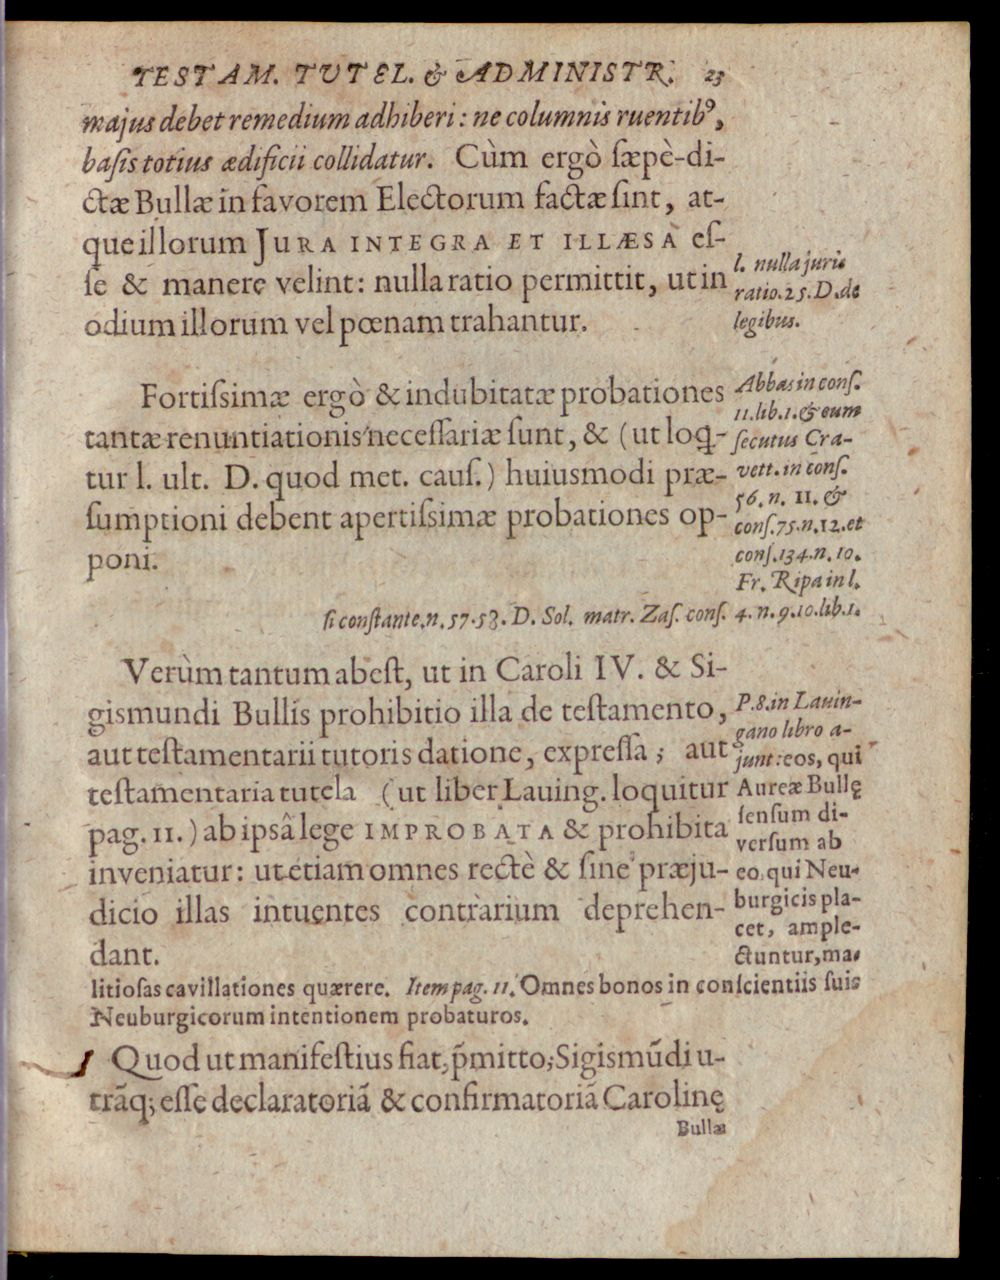 TESTAM. TUTEL. & ADMINISTR. 23
majus debet remedium adhiberi: ne columnis ruentibꝰ,
basis totius ædificii collidatur. Cùm ergò sæpè-di-
ctæ Bullæ in favorem Electorum factæ sint, at-
que illorum JURA INTEGRA ET ILLÆSA es-
se & manere velint: nulla ratio permittit, ut in
odium illorum vel pœnam trahantur.
l. nulla juris
ratio. 25. D. de
legibus.
Fortissimæ ergò & indubitatæ probationes
tantæ renuntiationis necessariæ sunt, & (ut loq̃-
tur l. ult. D. quod met. caus.) huiusmodi præ-
sumptioni debent apertissimæ probationes op-
poni.
Abbas in cons.
11. lib. 1. & eum
secutus Cra-
vett. in cons.
56. n. 11. &
cons. 75. n. 12. et
cons. 134. n. 10.
Fr. Ripa in l.
si constante. n. 57. 58. D. Sol. matr. Zas. cons. 4. n. 9. 10. lib. 1.
Verùm tantum abest, ut in Caroli IV. & Si-
gismundi Bullis prohibitio illa de testamento,
aut testamentarii tutoris datione, expressa; aut
testamentaria tutela (ut liber Lauing. loquitur
pag. 11.) ab ipsâ lege IMPROBATA & prohibita
inveniatur: ut etiam omnes rectè & sine præju-
dicio illas intuentes contrarium deprehen-
dant.
P. 8. in Lauin-
gano libro a-
junt: eos, qui
Aureæ Bullę
sensum di-
versum ab
eo, qui Neu-
burgicis pla-
cet, ample-
ctuntur, ma-
litiosas cavillationes quærere. Item pag. 11. Omnes bonos in conscientiis suis
Neuburgicorum intentionem probaturos.
Quod ut manifestius fiat, p̃mitto, Sigismũdi u-
trãq; esse declaratoriã & confirmatoriã Carolinę
Bullæ